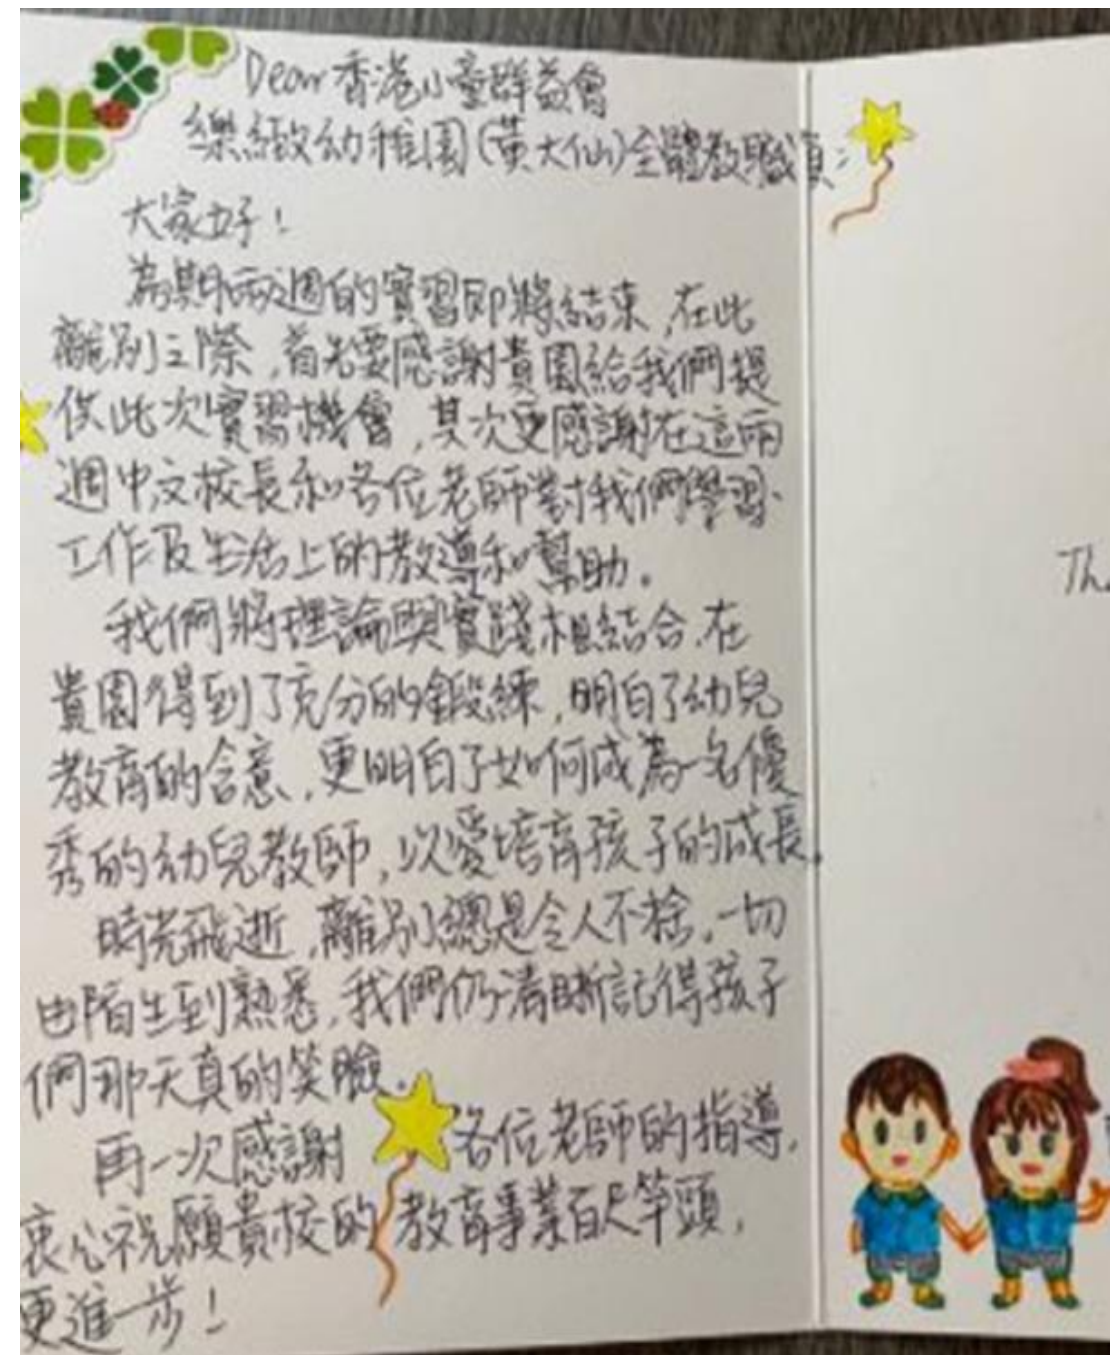 Dear 香港小童群益會
樂緻幼稚園(黃大仙)全體教職員:
大家好!
為期兩週的實習即將結束,在此
離別之際,首先要感謝貴園給我們提
供此次實習機會,其次更感謝在這兩
週中文校長和各位老師對我們學習、
工作及生活上的教導和幫助。
我們將理論與實踐相結合,在
貴園得到了充分的鍛練,明白了幼兒
教育的含意,更明白了如何成為一名優
秀的幼兒教師,以愛培育孩子的成長。
時光飛逝,離別總是令人不捨,一切
由陌生到熟悉,我們仍清晰記得孩子
們那天真的笑臉。
再一次感謝各位老師的指導,
衷心祝願貴校的教育事業百尺竿頭,
更進一步!
Th